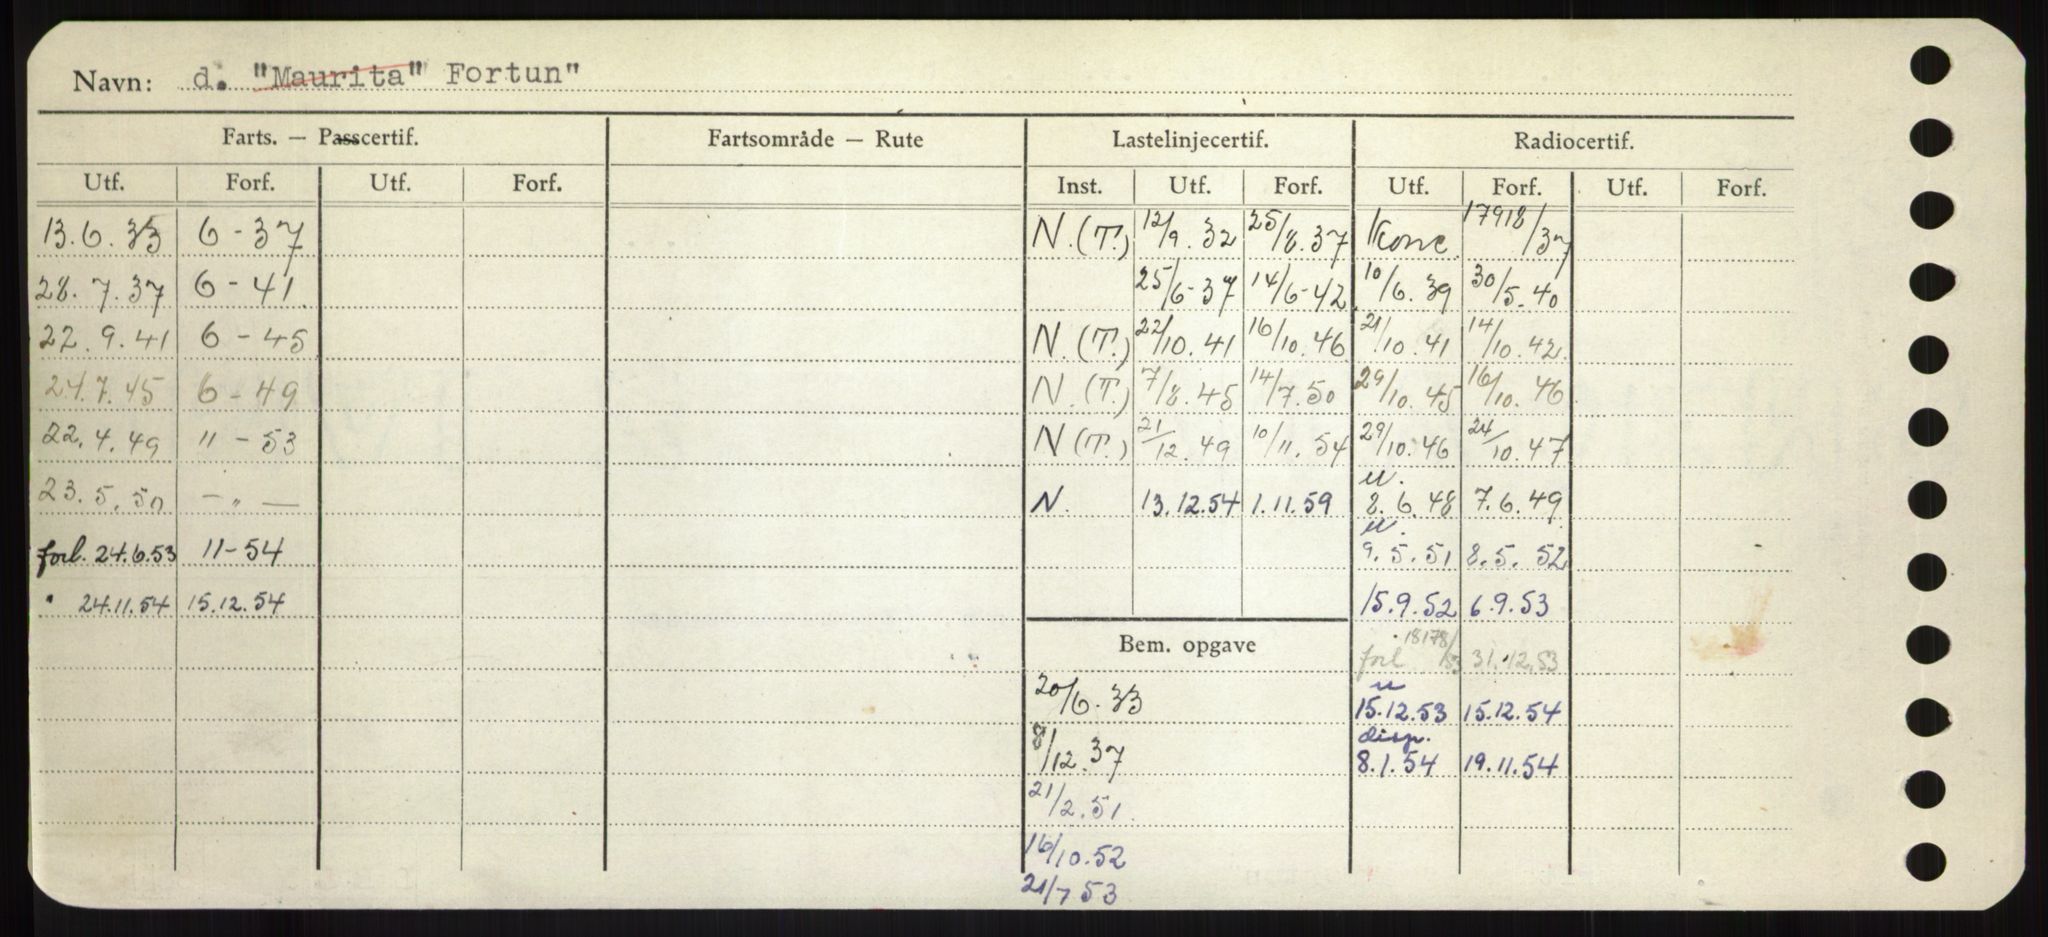 Navn: d. "Maurita" Fortun"
Farts. — Passcertif. Fartsområde — Rute Lastelinjecertif. Radiocertif.
Utf. Forf. Utf. Forf. Inst. Utf. Forf. Utf. Forf. Utf. Forf.
13.6.33 6-37 N.(T.) 12/9.32 25/8.37 Konc. 17918/37
28.7.37 6-41 25/6-37 14/6-42 10/6.39 30/5.40
22.9.41 6-45 N.(T.) 22/10.41 16/10.46 21/10.41 14/10.42
24.7.45 6-49 N.(T.) 7/8.45 14/7.50 29/10.45 16/10.46
22.4.49 11-53 N(T.) 21/12.49 10/11.54 29/10.46 24/10.47
23.5.50 -"- N. 13.12.54 1.11.59 u. 8.6.48 7.6.49
forl. 24.6.53 11-54 u. 9.5.51 8.5.52
" 24.11.54 15.12.54 15.9.52 6.9.53
Bem. opgave forl 18178/53 31.12.53
20/6.33 u 15.12.53 15.12.54
8/12.37 disp. 8.1.54 19.11.54
21/2.51.
16/10.52
21/7 53